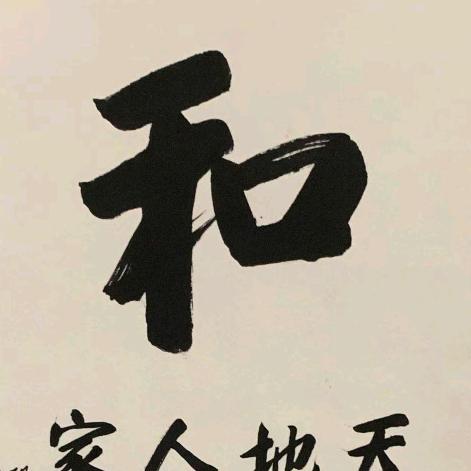 和
天地人家